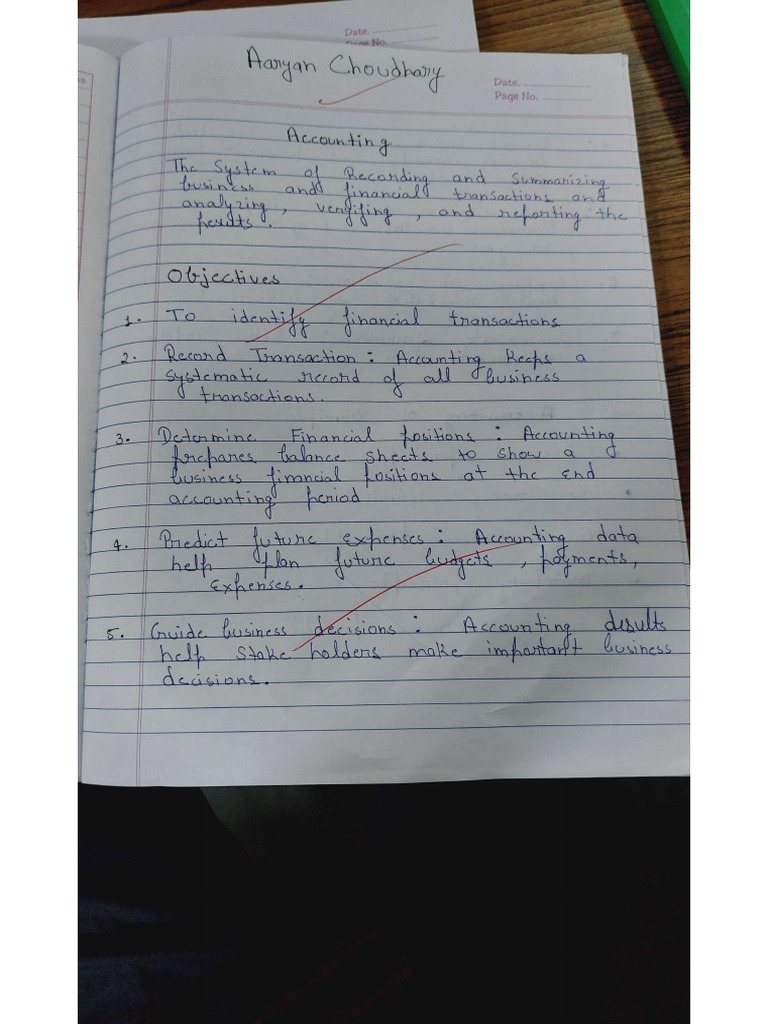 Date.
Page No.
Aaryan Choudhary
Date.
Page No.
Accounting
The System of Recording and Summarizing
business and financial transactions and
analyzing, verifing, and reporting the
results.
Objectives
1. To identify financial transactions
2. Record Transaction: Accounting Keeps a
systematic record of all business
transactions.
3. Determine Financial positions: Accounting
prepares balance sheets to show a
business finncial positions at the end
accounting period
4. Predict future expenses: Accounting data
help plan future budgets, payments,
expenses.
5. Guide business decisions: Accounting results
help stake holders make important business
decisions.